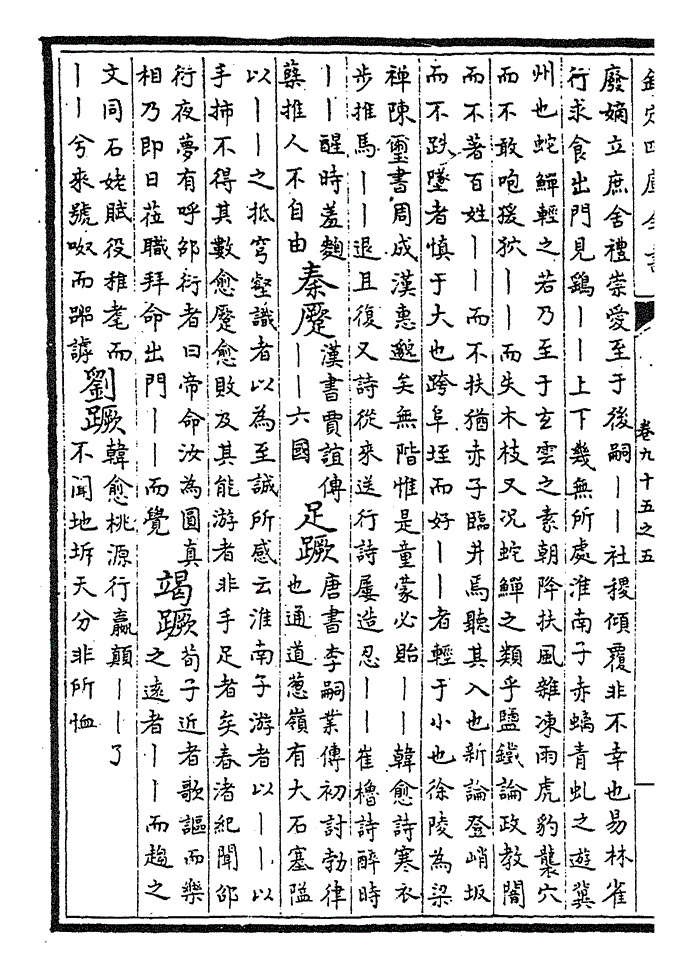 欽定四庫全書
卷九十五之五
廢嫡立庶舍禮崇愛至于後嗣丨丨社稷傾覆非不幸也易林雀
行求食出門見鷂丨丨上下幾無所處淮南子赤螭青虬之遊冀
州也蛇鱓輕之若乃至于玄雲之素朝降扶風雜凍雨虎豹襲穴
而不敢咆猨狖丨丨而失木枝又況蛇鱓之類乎鹽鐵論政教闇
而不著百姓丨丨而不扶猶赤子臨井焉聽其入也新論登峭坂
而不跌墜者慎于大也跨阜垤而好丨丨者輕于小也徐陵為梁
禪陳璽書周成漢惠邈矣無階惟是童蒙必貽丨丨韓愈詩寒衣
步推馬丨丨退且復又詩從來送行詩屢造忍丨丨崔櫓詩醉時
丨丨醒時羞麴
蘖推人不自由
秦蹷
漢書賈誼傳
丨丨六國
足蹶
唐書李嗣業傳初討勃律
也通道蔥嶺有大石塞隘
以丨丨之抵穹壑識者以為至誠所感云淮南子游者以丨丨以
手㧊不得其數愈蹷愈敗及其能游者非手足者矣春渚紀聞邵
衍夜夢有呼邵衍者曰帝命汝為圓真
相乃即日莅職拜命出門丨丨而覺
竭蹶
荀子近者歌謳而樂
之遠者丨丨而趨之
文同石姥賦役稚耄而
丨丨兮來號呶而踶謼
劉蹶
韓愈桃源行嬴顛丨丨了
不聞地坼天分非所恤